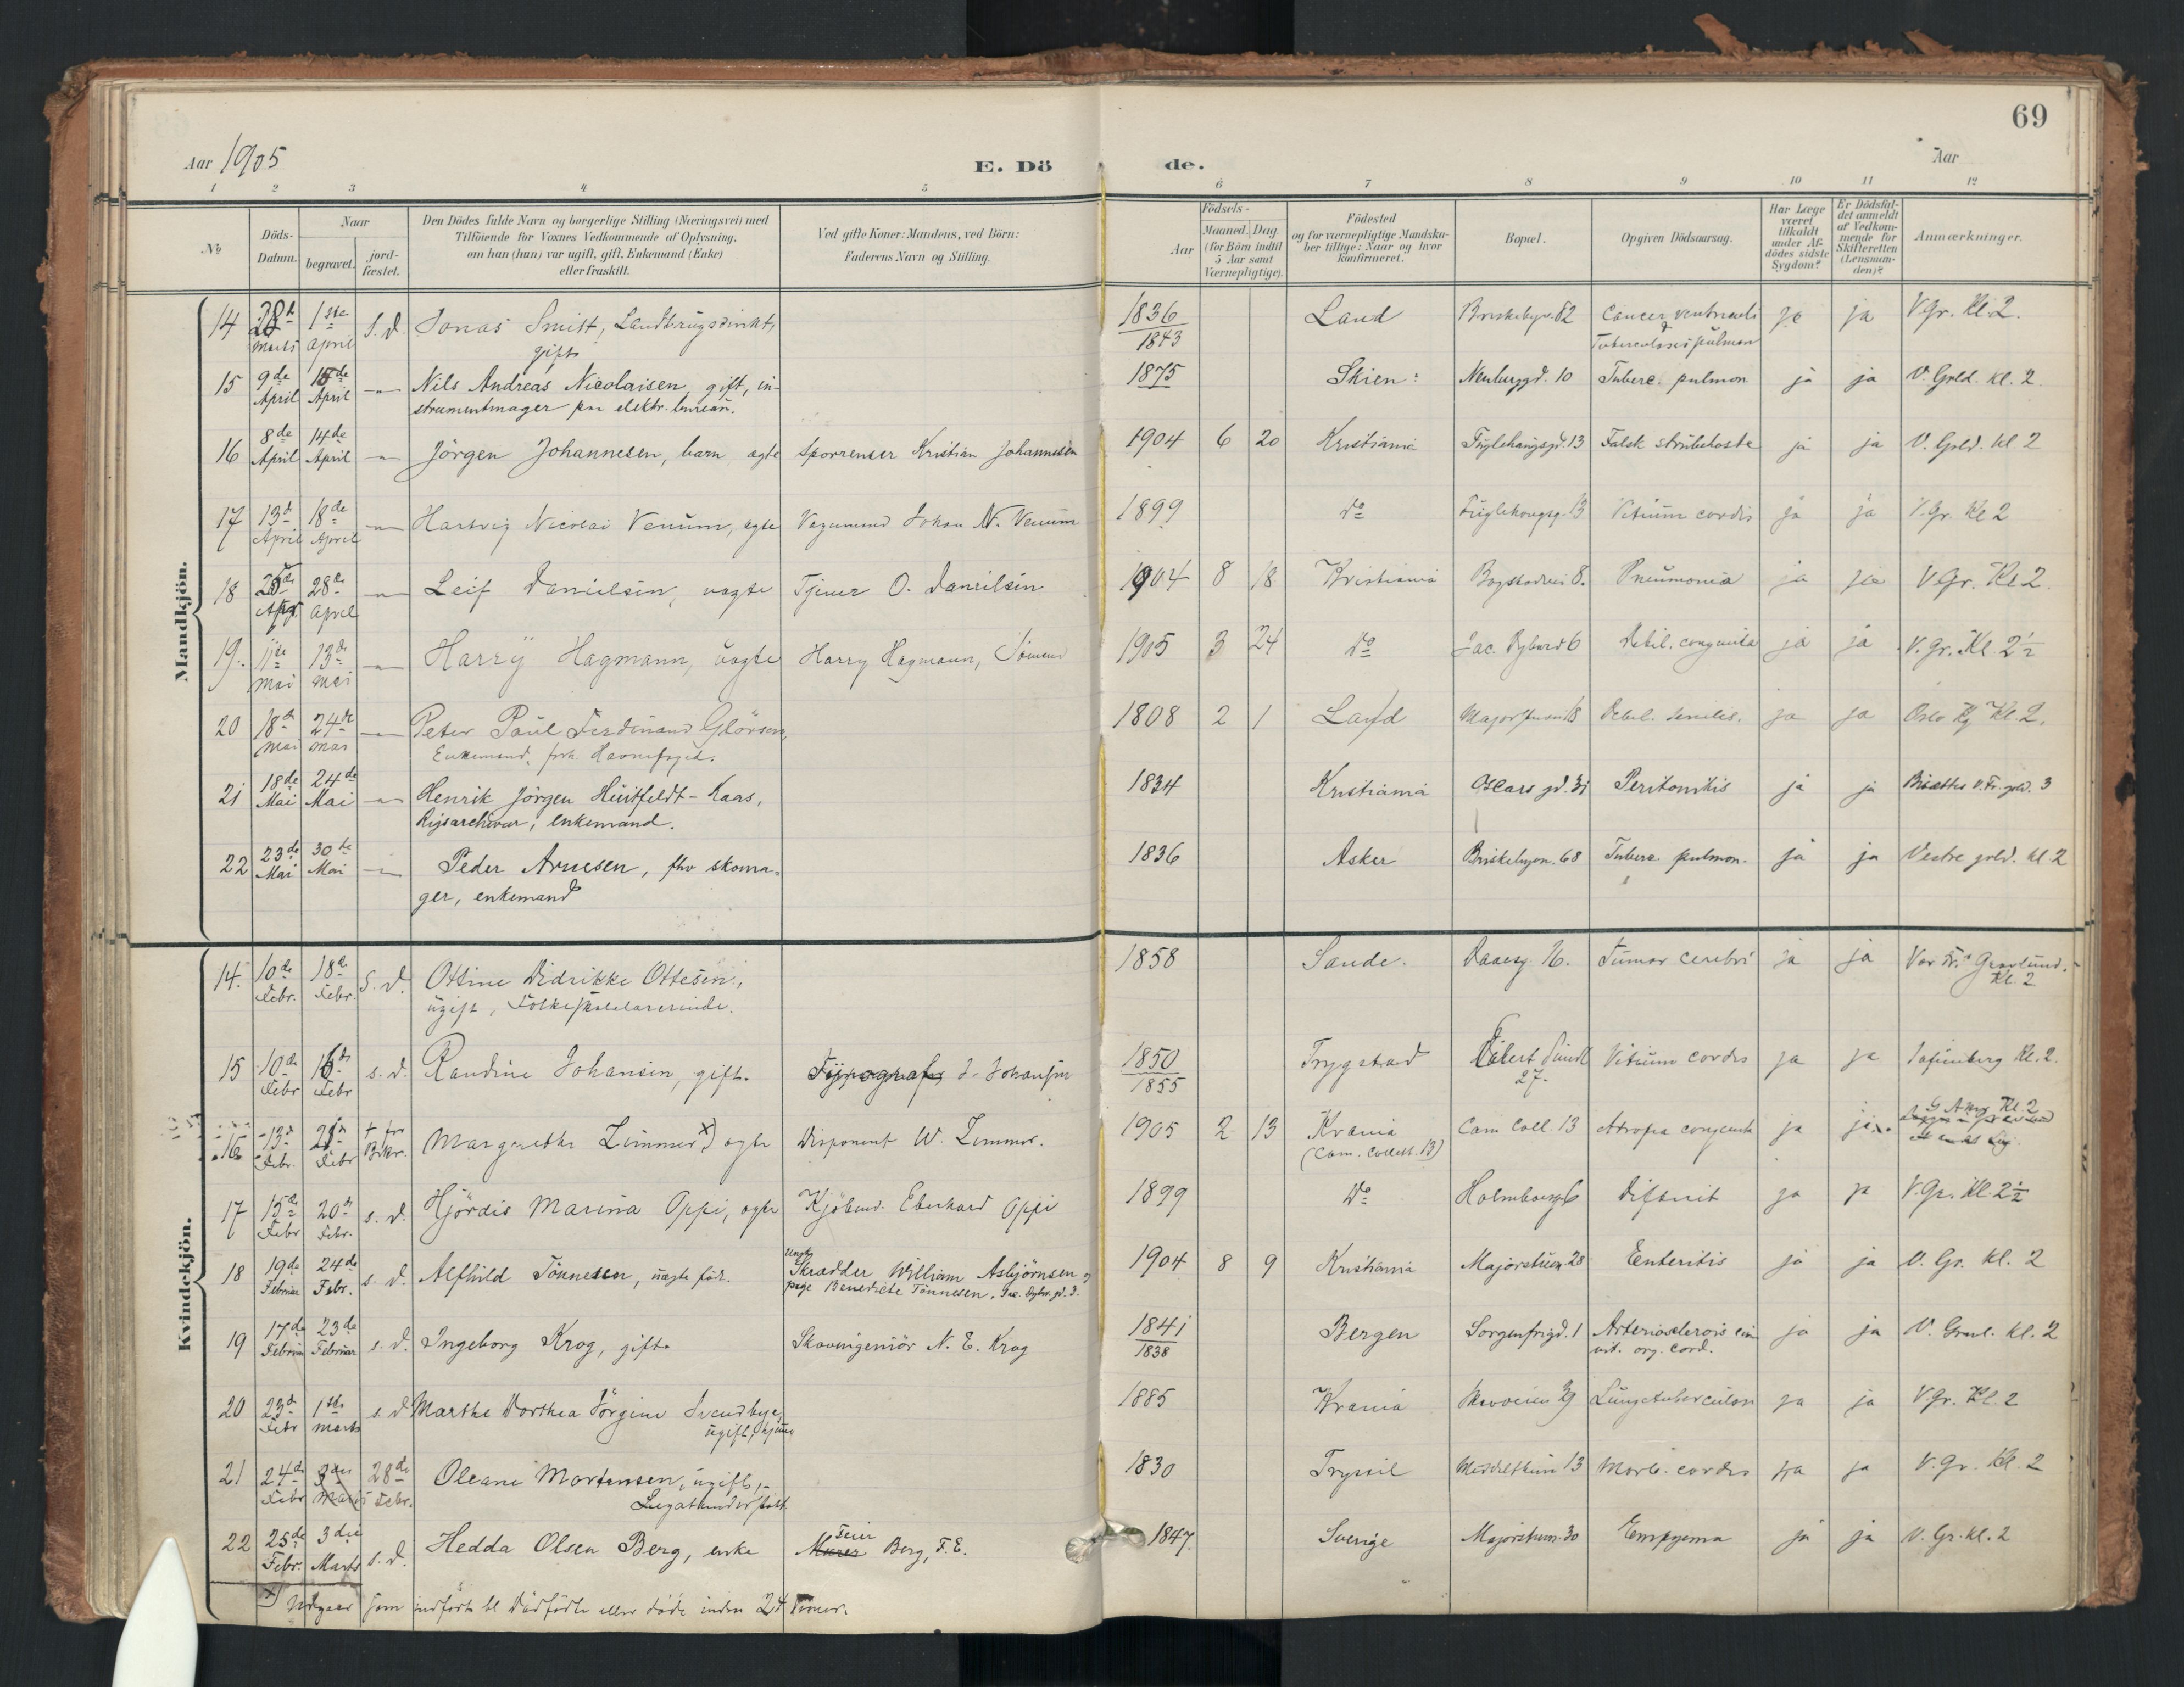 69
Aar 1905
E. Dö de.
Aar
1 2 3 4 5 6 7 8 9 10 11 12
No.
Döds-Datum.
Naar
begravet.
jord-fæstet.
Den Dödes fulde Navn og borgerlige Stilling (Næringsvei) med
Tilföiende for Voxnes Vedkommende af Oplysning,
om han (hun) var ugift, gift, Enkemand (Enke)
eller fraskilt.
Ved gifte Koner: Mandens, ved Börn:
Faderens Navn og Stilling.
Födsels-
Aar
Maaned. Dag.
(for Börn indtil
5 Aar samt
Værnepligtige).
Födested
og for værnepligtige Mandska-
ber tillige: Naar og hvor
konfirmeret.
Bopæl.
Opgiven Dödsaarsag.
Har Læge
været
tilkaldt
under Af-
dödes sidste
Sygdom?
Er Dödsfal-
det anmeldt
af Vedkom-
mende for
Skifteretten
(Lensman-
den)?
Anmærkninger.
Mandkjön.
14 28 Marts 1ste April S. D. Jonas Smitt, Landbrugsdirekt, 1836 Land Briskebyv. 82 Cancer ventriculi ja ja V Gr. Kl 2.
gift 1843 & Tuberculosis pulmon
15 9de April 15de April " Nils Andreas Nicolaisen, gift, in- 1875 Skien Neuberggd. 10 Tuberc. pulmon ja ja V. Grld. kl. 2
strumentmager paa elektr. bureau.
16 8de April 14de April " Jörgen Johannesen, barn ægte Sporrenser Kristian Johannesen 1904 6 20 Kristiania Fuglehaugsgd. 13 Falsk strubehoste ja ja V. Grld. kl 2
17 13d April 18de April " Hartvig Nicolai Venum, ægte Vognmand Johan N. Venum 1899 Do Fuglehaugsg. 13 Vitium cordis ja ja V. Gr. Kl 2
18 April 28de April " Leif Danielsen, uægte Tjener O. Danielsen 1904 8 18 Kristiania Bogstadvei 8. Pneumonia ja ja V Gr. Kl 2.
19. 11te Mai 13de Mai " Harry Hagmann, uægte Harry Hagmann, Sömand 1905 3 24 Do Jac. Aalls 6 Debil. congenita ja ja V. Gr. Kl. 2½
20 18d Mai 24de Mai " Peter Paul Ferdinand Glörsen, 1808 2 1 Land Majorstuvei 18 Debil. senilis. ja ja Oslo Kg Kl 2.
Enkemand, forh. Havnefoged.
21 18de Mai 24de Mai " Henrik Jörgen Huitfeldt-Kaas, 1834 Kristiania Oscars gd. 31 Peritonitis ja ja Bisættes V. Fr. grld. 3
Rigsarchivar, enkemand.
22 23de Mai 30te Mai " Peder Arnesen, fhv skoma- 1836 Asker Briskebyvn. 68 Tuberc. pulmon. ja ja Vestre grld. kl 2
ger, enkemand
Kvindekjön.
14. 10de Febr. 18de Febr. S. D. Ottine Didrikke Ottesen, 1858 Sande. Daasg. 16. Tumor cerebri ja ja Vor Fr. Gravlund.
ugift, Folkeskolelærerinde. Kl. 2
15 10de Febr 16de Febr s. d. Randine Johansen, gift. Typograf J. Johansen 1850 Trygstad Eilert Sundt 27. Vitium cordis ja ja Sofienberg Kl. 2.
1855
16 13d Febr. Febr Margrethe Zimmer x) ægte Disponent W. Zimmer. 1905 2 13 Krania Cam Coll. 13 Atrofia congenita ja ja Kl. 2
(Cam. Collett. 13)
17 15de Febr 20de Febr. s. d. Hjördis Marina Oppi, ægte Kjöbmd. Eberhard Oppi 1899 Do Holmboesg. 6 Difterit ja ja V. Gr. Kl. 2½
18 19de Februar 24de Febr. s. d. Alfhild Tönnesen, uægte föd. Ungk. Skrædder William Asbjörnsen og 1904 8 9 Kristiania Majorstuen 28 Enteritis ja ja V. Gr. kl. 2
pige Benedicte Tönnesen. Jac. gd. 3.
19 17de Februar 23de Februar s. d. Ingeborg Krog, gift. Skovingeniör N. E. Krog 1841 Bergen Sorgenfrigd. 1 Arteriosclerosis cum ja ja V. Gravl. kl. 2
1838 vit. org. cord.
20 23d Febr 1ste Marts s. d Marthe Dorthea Jörgine Svendbye, 1885 Krania 39 Lungetuberculose ja ja V Gr. Kl. 2
ugift, tjener
21 24de Febr 3die Marts 28de Febr. Oleane Mortensen, ugift, 1830 Trysil Middelthun 13 Morb. cordis ja ja V. Gr. Kl. 2
Legatunderstöt
22 25de Febr. 3die Marts s. d. Hedda Olsen Berg, enke Murer Feier Berg, F. E. 1847 Sverige Majorstuvn. 30 Empyema ja ja V. Gr. kl. 2
x) Udgaar som indfört bl dödfödte eller döde inden 24 Timer.